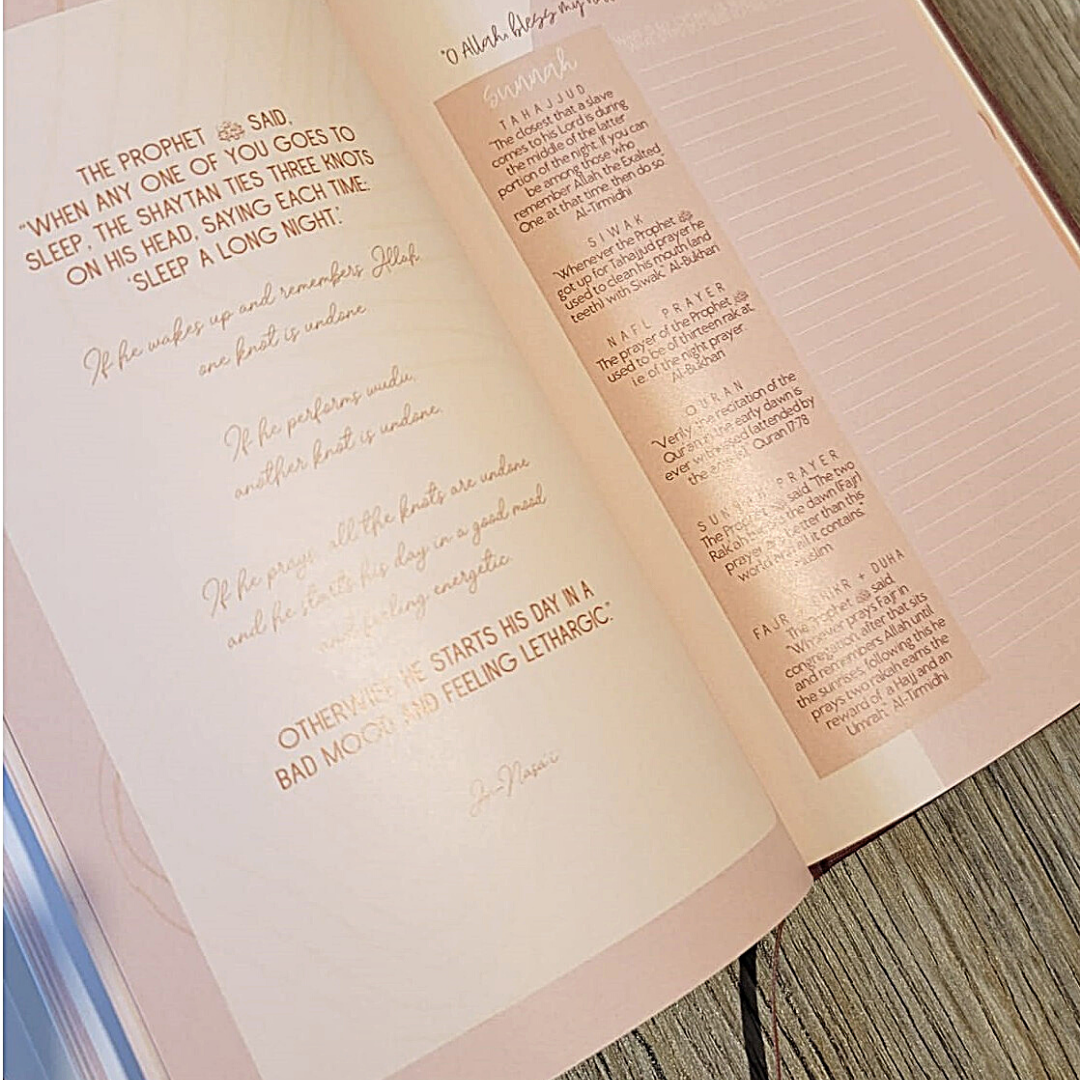 THE PROPHET ﷺ SAID,
"WHEN ANY ONE OF YOU GOES TO
SLEEP, THE SHAYTAN TIES THREE KNOTS
ON HIS HEAD, SAYING EACH TIME:
'SLEEP A LONG NIGHT'.
If he wakes up and remembers Allah,
one knot is undone.
If he performs wudu,
another knot is undone.
If he prays, all the knots are undone
and he starts his day in a good mood
and feeling energetic.
OTHERWISE HE STARTS HIS DAY IN A
BAD MOOD AND FEELING LETHARGIC."
An-Nasa'i
"O Allah, bless my
sunnah
TAHAJJUD
"The closest that a slave
comes to his Lord is during
the middle of the latter
portion of the night. If you can
be among those who
remember Allah the Exalted
One at that time then do so"
Al-Tirmidhi
SIWAK
"Whenever the Prophet ﷺ
got up for Tahajjud prayer he
used to clean his mouth (and
teeth) with Siwak." Al-Bukhari
NAFL PRAYER
The prayer of the Prophet ﷺ
used to be of thirteen rak'at,
i.e. of the night prayer.
Al-Bukhari
QURAN
"Verily, the recitation of the
Qur'an in the early dawn is
ever witnessed (attended by
the Quran 17:78
PRAYER
The Prophet said, "The two
Rak'ah the dawn (Fajr)
prayer are better than this
world and all it contains."
Muslim
FAJR DHIKR + DUHA
The Prophet ﷺ said,
"Whoever prays Fajr in
congregation, after that sits
and remembers Allah until
the sunrises, following this he
prays two rakah earns the
reward of a Hajj and an
Umrah." Al-Tirmidhi